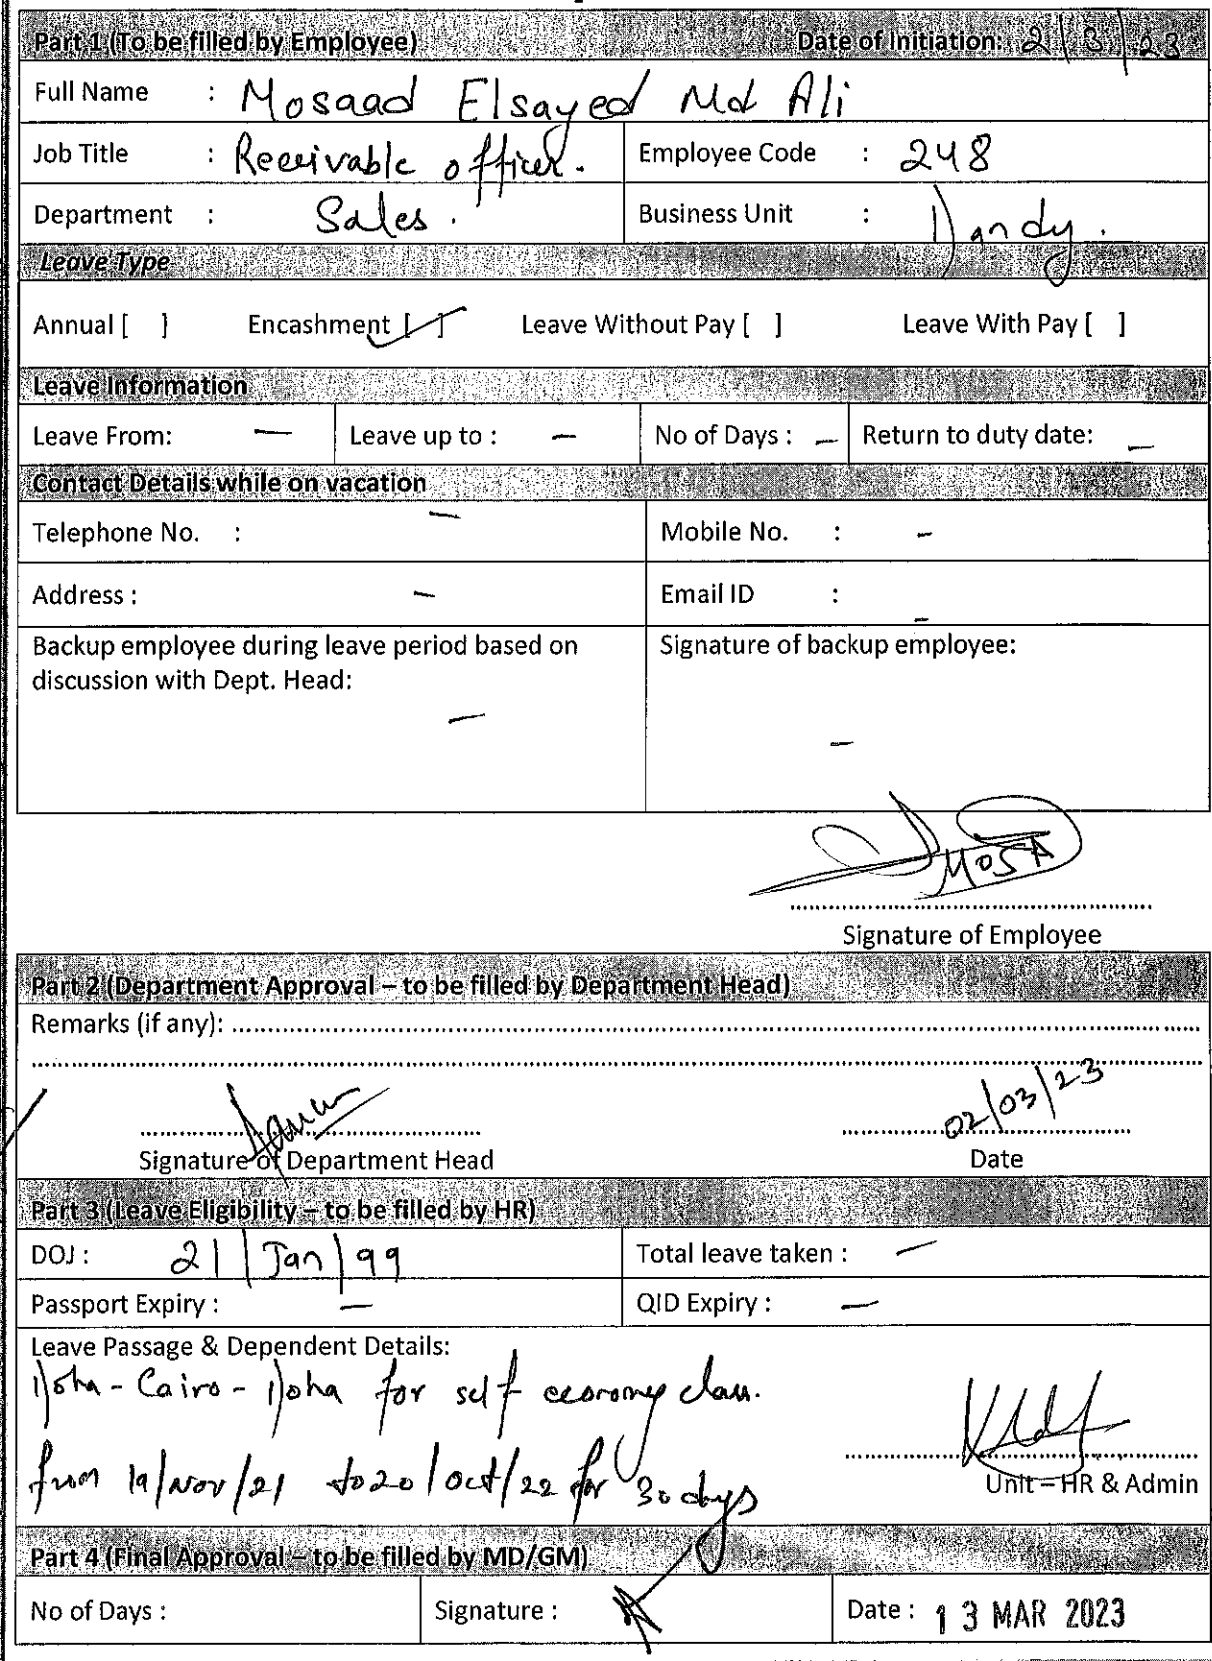 Part 1 (To be filled by Employee) Date of Initiation: 2/3/23
Full Name : Mosaad Elsayed Md Ali
Job Title : Receivable officer. Employee Code : 248
Department : Sales. Business Unit : Dandy.
Leave Type
Annual [ ] Encashment [✓] Leave Without Pay [ ] Leave With Pay [ ]
Leave Information
Leave From: — Leave up to : — No of Days : — Return to duty date: —
Contact Details while on vacation
Telephone No. : — Mobile No. : —
Address : — Email ID : —
Backup employee during leave period based on Signature of backup employee:
discussion with Dept. Head:
— —
MOSA
Signature of Employee
Part 2 (Department Approval – to be filled by Department Head)
Remarks (if any):
02/03/23
Signature of Department Head Date
Part 3 (Leave Eligibility – to be filled by HR)
DOJ : 21/Jan/99 Total leave taken : —
Passport Expiry : — QID Expiry : —
Leave Passage & Dependent Details:
Doha - Cairo - Doha for self economy class.
from 19/Nov/21 to 20/Oct/22 for 30 days
Unit – HR & Admin
Part 4 (Final Approval – to be filled by MD/GM)
No of Days : Signature : Date : 13 MAR 2023